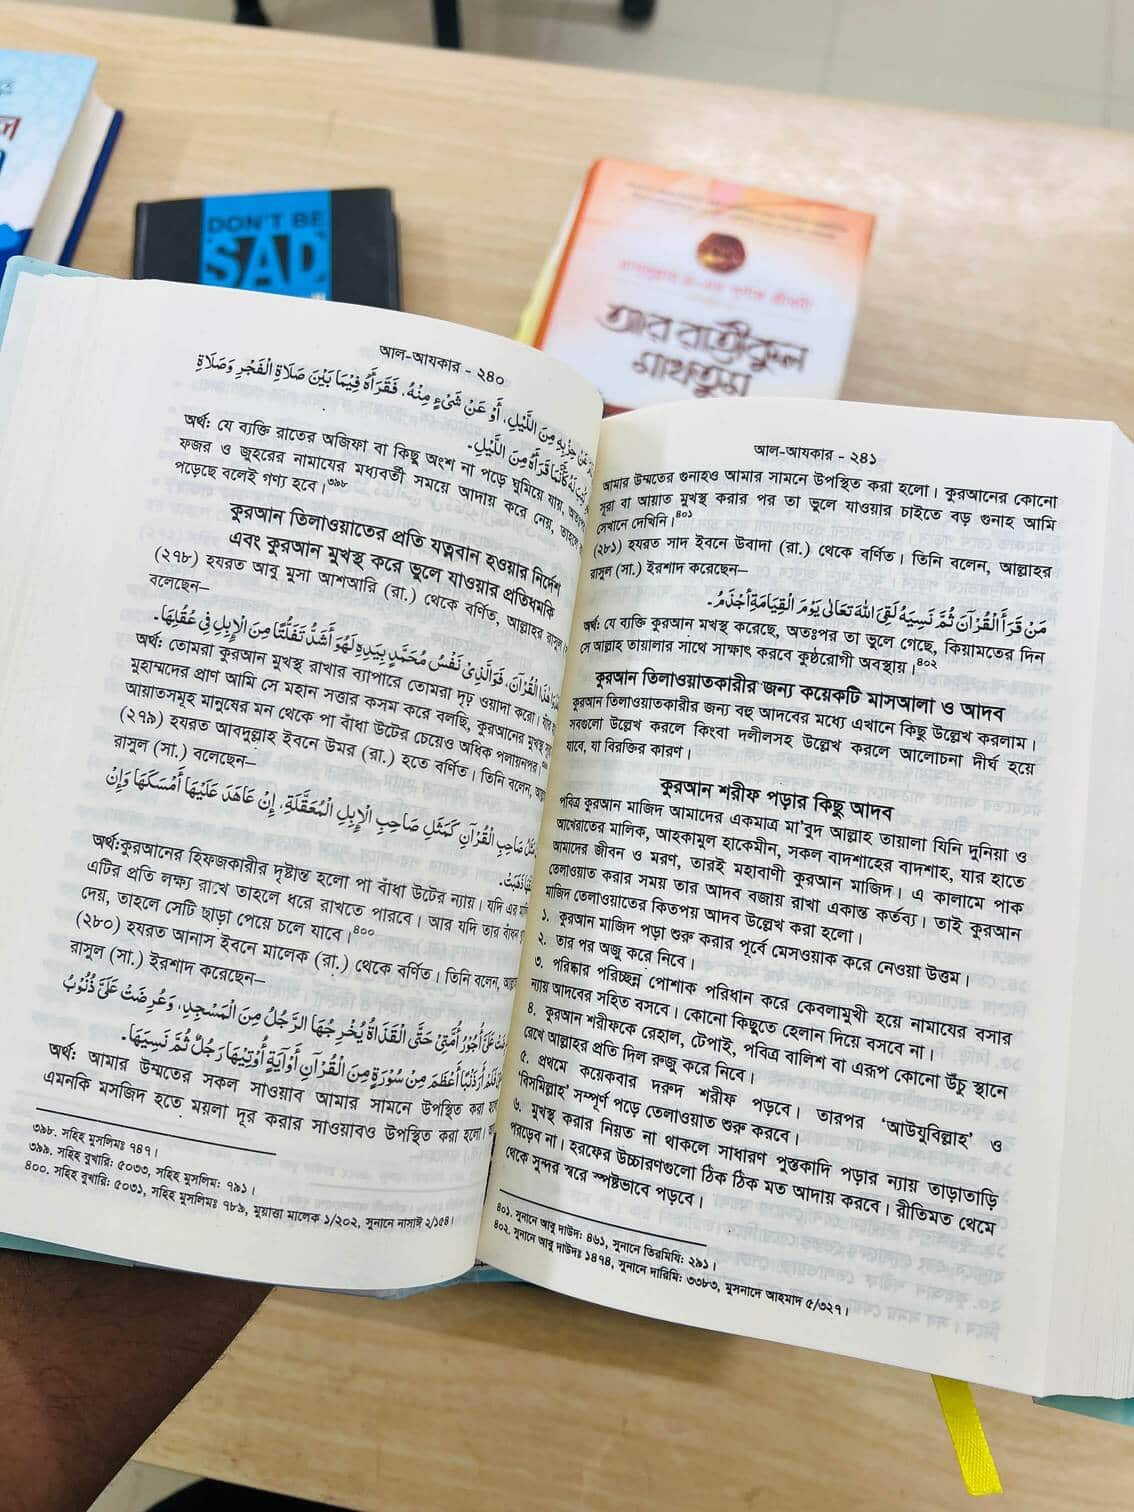 DON'T BE
SAD
আর রাহীকুল
মাখতুম
আল-আযকার - ২৪০
عَنْ حِزْبِهِ مِنَ اللَّيْلِ، أَوْ عَنْ شَيْءٍ مِنْهُ، فَقَرَأَهُ فِيمَا بَيْنَ صَلَاةِ الْفَجْرِ وَصَلَاةِ
كَأَنَّمَا قَرَأَهُ مِنَ اللَّيْلِ.
অর্থ: যে ব্যক্তি রাতের অজিফা বা কিছু অংশ না পড়ে ঘুমিয়ে যায়,
ফজর ও জুহরের নামাযের মধ্যবর্তী সময়ে আদায় করে নেয়, তাহলে
পড়েছে বলেই গণ্য হবে।৩৯৮
কুরআন তিলাওয়াতের প্রতি যত্নবান হওয়ার নির্দেশ
এবং কুরআন মুখস্থ করে ভুলে যাওয়ার প্রতিধমকি
(২৭৮) হযরত আবু মুসা আশআরি (রা.) থেকে বর্ণিত, আল্লাহর রাসুল
বলেছেন–
هٰذَا الْقُرْآنَ، فَوَالَّذِيْ نَفْسُ مُحَمَّدٍ بِيَدِهِ لَهُوَ أَشَدُّ تَفَلُّتًا مِنَ الْإِبِلِ فِيْ عُقُلِهَا.
অর্থ: তোমরা কুরআন মুখস্থ রাখার ব্যাপারে তোমরা দৃঢ় ওয়াদা করো।
মুহাম্মদের প্রাণ আমি সে মহান সত্তার কসম করে বলছি, কুরআনের মুখস্থ
আয়াতসমূহ মানুষের মন থেকে পা বাঁধা উটের চেয়েও অধিক পলায়নপর।
(২৭৯) হযরত আবদুল্লাহ ইবনে উমর (রা.) হতে বর্ণিত। তিনি বলেন,
রাসুল (সা.) বলেছেন–
صَاحِبِ الْقُرْآنِ كَمَثَلِ صَاحِبِ الْإِبِلِ الْمُعَقَّلَةِ، إِنْ عَاهَدَ عَلَيْهَا أَمْسَكَهَا وَإِنْ
ذَهَبَتْ.
অর্থ:কুরআনের হিফজকারীর দৃষ্টান্ত হলো পা বাঁধা উটের ন্যায়। যদি এর
এটির প্রতি লক্ষ্য রাখে তাহলে ধরে রাখতে পারবে। আর যদি তার বাঁধন
দেয়, তাহলে সেটি ছাড়া পেয়ে চলে যাবে।৪০০
(২৮০) হযরত আনাস ইবনে মালেক (রা.) থেকে বর্ণিত। তিনি বলেন,
রাসুল (সা.) ইরশাদ করেছেন–
عَلَيَّ أُجُوْرُ أُمَّتِيْ حَتَّى الْقَذَاةُ يُخْرِجُهَا الرَّجُلُ مِنَ الْمَسْجِدِ، وَعُرِضَتْ عَلَيَّ ذُنُوْبُ
فَلَمْ أَرَ ذَنْبًا أَعْظَمَ مِنْ سُوْرَةٍ مِنَ الْقُرْآنِ أَوْ آيَةٍ أُوْتِيْهَا رَجُلٌ ثُمَّ نَسِيَهَا.
অর্থ: আমার উম্মতের সকল সাওয়াব আমার সামনে উপস্থিত করা
এমনকি মসজিদ হতে ময়লা দূর করার সাওয়াবও উপস্থিত করা হলো।
৩৯৮. সহিহ মুসলিমঃ ৭৪৭।
৩৯৯. সহিহ বুখারি: ৫০৩৩, সহিহ মুসলিম: ৭৯১।
৪০০. সহিহ বুখারি: ৫০৩১, সহিহ মুসলিমঃ ৭৮৯, মুয়াত্তা মালেক ১/২০২, সুনানে নাসাঈ ২/১৫৪।
আল-আযকার - ২৪১
আমার উম্মতের গুনাহও আমার সামনে উপস্থিত করা হলো। কুরআনের কোনো
সূরা বা আয়াত মুখস্থ করার পর তা ভুলে যাওয়ার চাইতে বড় গুনাহ আমি
সেখানে দেখিনি।৪০১
(২৮১) হযরত সাদ ইবনে উবাদা (রা.) থেকে বর্ণিত। তিনি বলেন, আল্লাহর
রাসুল (সা.) ইরশাদ করেছেন–
مَنْ قَرَأَ الْقُرْآنَ ثُمَّ نَسِيَهُ لَقِيَ اللهَ تَعَالَى يَوْمَ الْقِيَامَةِ أَجْذَمُ.
অর্থ: যে ব্যক্তি কুরআন মুখস্থ করেছে, অতঃপর তা ভুলে গেছে, কিয়ামতের দিন
সে আল্লাহ তায়ালার সাথে সাক্ষাৎ করবে কুষ্ঠরোগী অবস্থায়।৪০২
কুরআন তিলাওয়াতকারীর জন্য কয়েকটি মাসআলা ও আদব
কুরআন তিলাওয়াতকারীর জন্য বহু আদবের মধ্যে এখানে কিছু উল্লেখ করলাম।
সবগুলো উল্লেখ করলে কিংবা দলীলসহ উল্লেখ করলে আলোচনা দীর্ঘ হয়ে
যাবে, যা বিরক্তির কারণ।
কুরআন শরীফ পড়ার কিছু আদব
পবিত্র কুরআন মাজিদ আমাদের একমাত্র মা'বুদ আল্লাহ তায়ালা যিনি দুনিয়া ও
আখেরাতের মালিক, আহকামুল হাকেমীন, সকল বাদশাহের বাদশাহ, যার হাতে
আমাদের জীবন ও মরণ, তারই মহাবাণী কুরআন মাজিদ। এ কালামে পাক
তেলাওয়াত করার সময় তার আদব বজায় রাখা একান্ত কর্তব্য। তাই কুরআন
মাজিদ তেলাওয়াতের কিতপয় আদব উল্লেখ করা হলো।
১. কুরআন মাজিদ পড়া শুরু করার পূর্বে মেসওয়াক করে নেওয়া উত্তম।
২. তার পর অজু করে নিবে।
৩. পরিষ্কার পরিচ্ছন্ন পোশাক পরিধান করে কেবলামুখী হয়ে নামাযের বসার
ন্যায় আদবের সহিত বসবে। কোনো কিছুতে হেলান দিয়ে বসবে না।
৪. কুরআন শরীফকে রেহাল, টেপাই, পবিত্র বালিশ বা এরূপ কোনো উঁচু স্থানে
রেখে আল্লাহর প্রতি দিল রুজু করে নিবে।
৫. প্রথমে কয়েকবার দরুদ শরীফ পড়বে। তারপর 'আউযুবিল্লাহ' ও
'বিসমিল্লাহ' সম্পূর্ণ পড়ে তেলাওয়াত শুরু করবে।
৬. মুখস্থ করার নিয়ত না থাকলে সাধারণ পুস্তকাদি পড়ার ন্যায় তাড়াতাড়ি
পড়বে না। হরফের উচ্চারণগুলো ঠিক ঠিক মত আদায় করবে। রীতিমত থেমে
থেকে সুন্দর স্বরে স্পষ্টভাবে পড়বে।
৪০১. সুনানে আবু দাউদ: ৪৬১, সুনানে তিরমিযি: ২৯১।
৪০২. সুনানে আবু দাউদঃ ১৪৭৪, সুনানে দারিমি: ৩৩৮৩, মুসনাদে আহমাদ ৫/৩২৭।